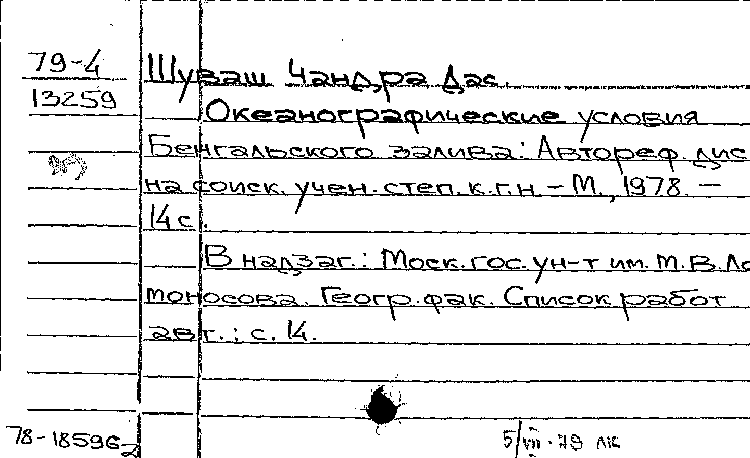 79-4
13259
Шуваш Чандра Дас.
Океанографические условия
Бенгальского залива: Автореф. дис
на соиск. учен. степ. к.г.н – М., 1978. –
14 с.
В надзаг.: Моск. гос. ун-т им. М.В. Ло
моносова. Геогр. фак. Список работ
авт.: с. 14.
78-18596
5/VII-79 лк